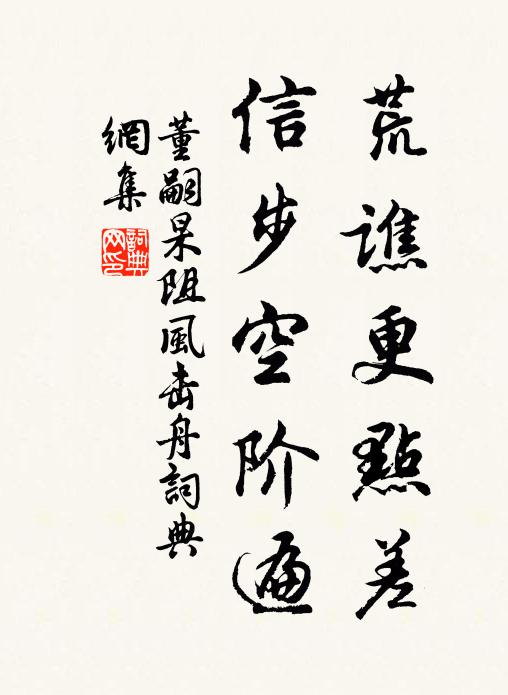 荒譙更點差
信步空阶遍
董嗣杲阻風击舟詞典
網集
詞典
网印